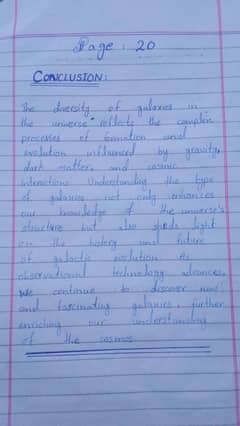 Page : 20
CONCLUSION:
The diversity of galaxies in
the universe reflects the complex
processes of formation and
evolution influenced by gravity,
dark matter, and cosmic
interactions. Understanding the type
of galaxies not only enhances
our knowledge of the universe's
structure but also sheds light
on the history and future
of galactic evolution. As
observational technology advances,
we continue to discover new
and fascinating galaxies, further
enriching our understanding
of the cosmos